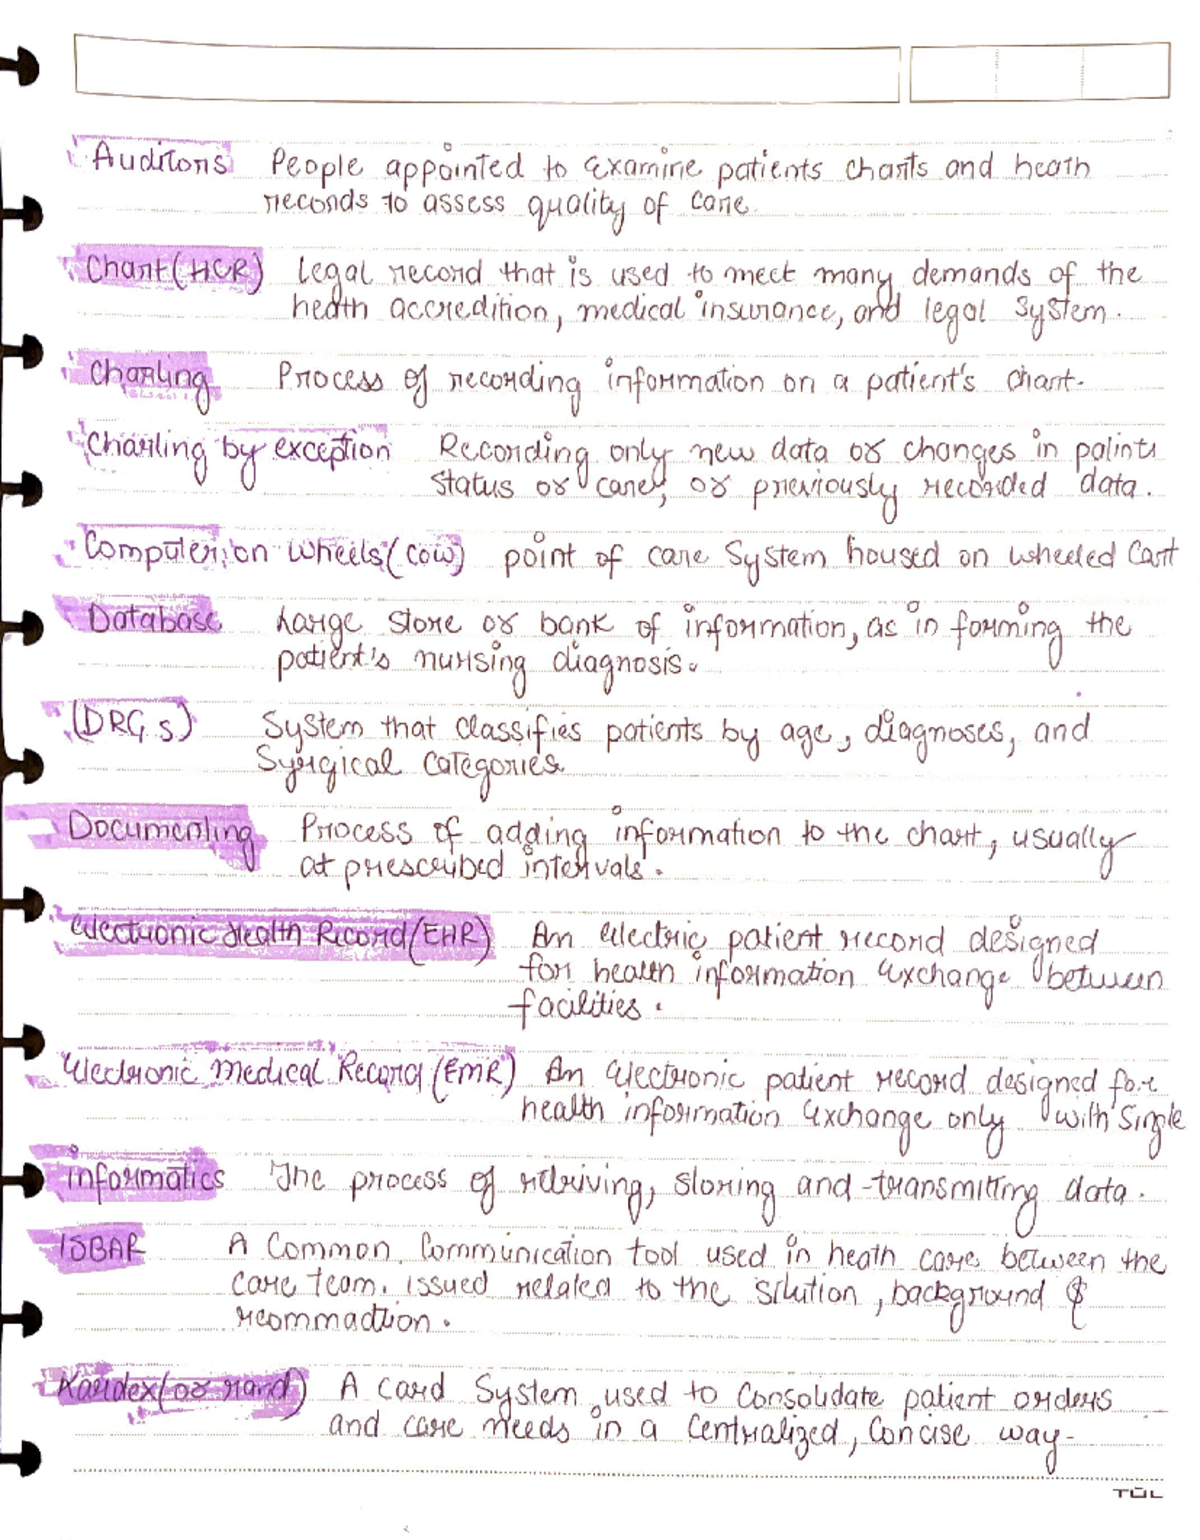 Auditors People appointed to examine patients charts and heath
records to assess quality of care.
Chart (HCR) legal record that is used to meet many demands of the
health accredition, medical insurance, and legal System.
Charting Process of recording information on a patient's chart.
Charting by exception Recording only new data or changes in
status or care, or previously recorded data.
Computer on Wheels (COW) point of care System housed on wheeled Cart
Database Large store or bank of information, as in forming the
patient's nursing diagnosis.
(DRG s) System that classifies patients by age, diagnoses, and
Syrgical categories.
Documenting Process of adding information to the chart, usually
at prescribed intervals.
Electronic Health Record (EHR) An electric patient record designed
for health information exchange between
facilities.
Electronic Medical Record (EMR) An electronic patient record designed for
health information exchange only with Single
informatics The process of storing and transmitting data.
ISBAR A Common Communication tool used in heath care between the
care team. issued related to the background &
Kardex (or rand) A card System used to Consolidate patient orders
and care needs in a Centralized, Concise way-
TUL